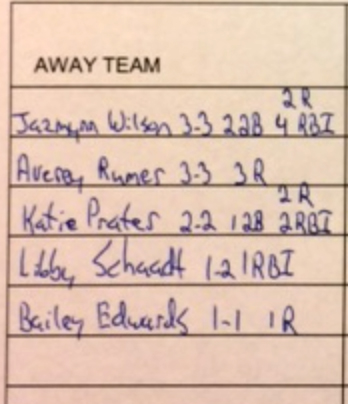 AWAY TEAM
2R
Jazmynn Wilson 3-3 2 2B 4 RBI
Avery Rumer 3-3 3R
2R
Katie Prates 2-2 1 2B 2RBI
Libby Schaadt 1-2 1RBI
Bailey Edwards 1-1 1R